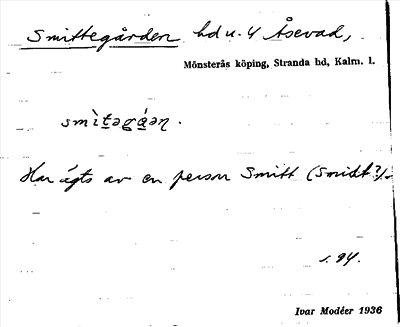 Smittegården hd u. 4 Åsevad,
Mönsterås köping, Stranda hd, Kalm. l.
smìtəgán.
Har ägts av en person Smitt (Smidt?).
s. 94.
Ivar Modéer 1936